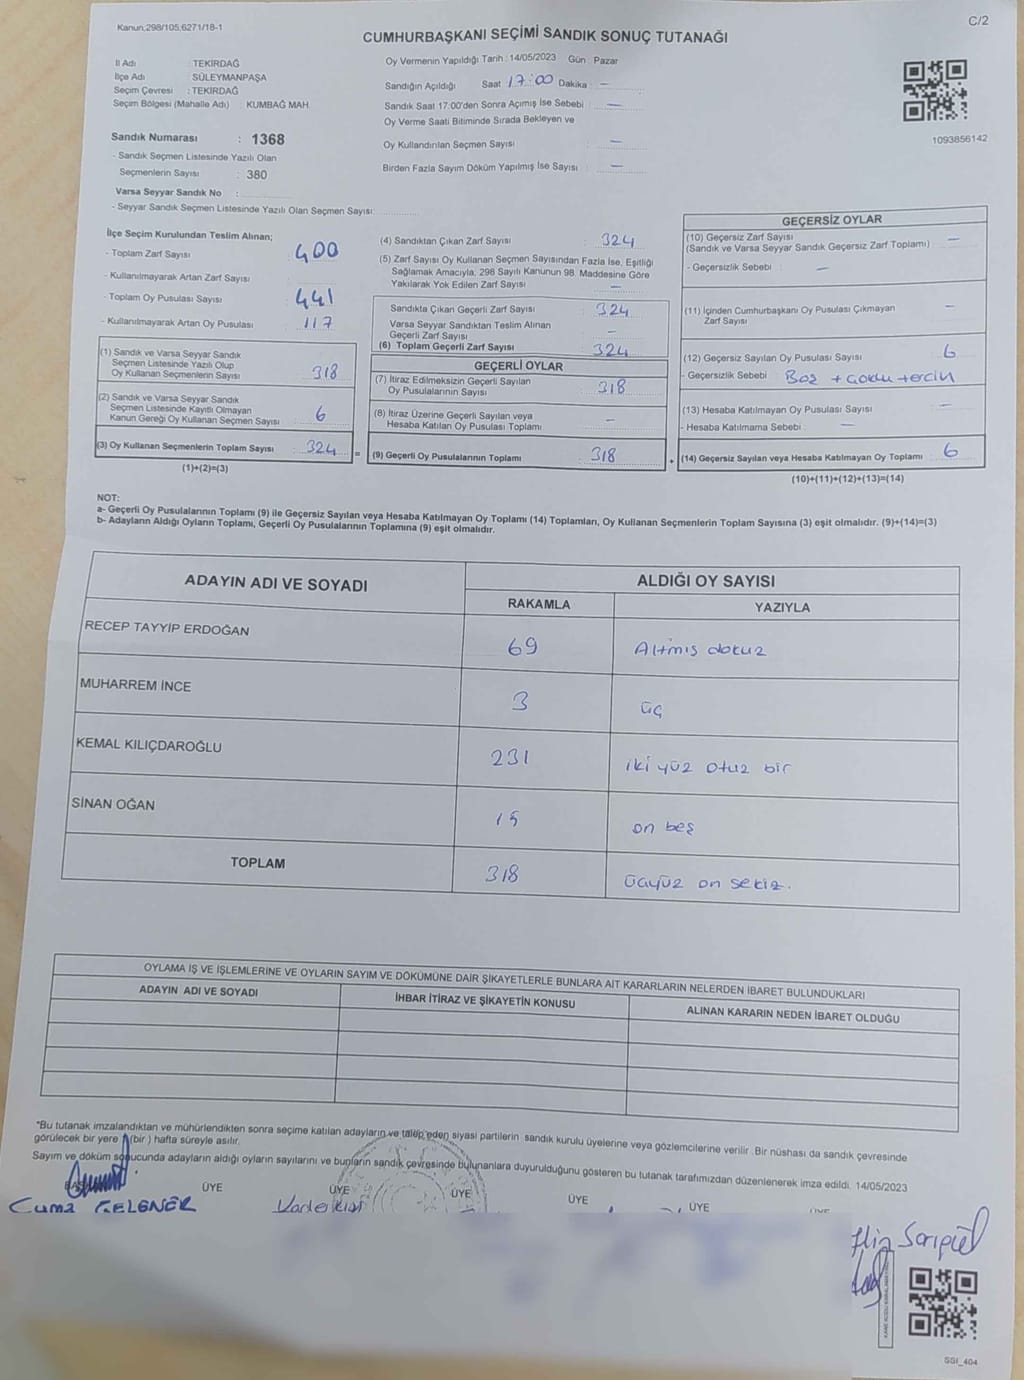 Kanun;298/105,6271/18-1
C/2
CUMHURBAŞKANI SEÇİMİ SANDIK SONUÇ TUTANAĞI
İl Adı : TEKİRDAĞ
İlçe Adı : SÜLEYMANPAŞA
Seçim Çevresi : TEKİRDAĞ
Seçim Bölgesi (Mahalle Adı) : KUMBAĞ MAH.
Sandık Numarası : 1368
- Sandık Seçmen Listesinde Yazılı Olan
Seçmenlerin Sayısı : 380
Varsa Seyyar Sandık No :
- Seyyar Sandık Seçmen Listesinde Yazılı Olan Seçmen Sayısı:
Oy Vermenin Yapıldığı Tarih : 14/05/2023 Gün : Pazar
Sandığın Açıldığı Saat 17:00 Dakika : –
Sandık Saat 17:00'den Sonra Açımış İse Sebebi –
Oy Verme Saati Bitiminde Sırada Bekleyen ve
Oy Kullandırılan Seçmen Sayısı : –
Birden Fazla Sayım Döküm Yapılmış İse Sayısı : –
1093856142
İlçe Seçim Kurulundan Teslim Alınan;
- Toplam Zarf Sayısı : 400
- Kullanılmayarak Artan Zarf Sayısı :
- Toplam Oy Pusulası Sayısı : 441
- Kullanılmayarak Artan Oy Pusulası : 117
(1) Sandık ve Varsa Seyyar Sandık
Seçmen Listesinde Yazılı Olup
Oy Kullanan Seçmenlerin Sayısı : 318
(2) Sandık ve Varsa Seyyar Sandık
Seçmen Listesinde Kayıtlı Olmayan
Kanun Gereği Oy Kullanan Seçmen Sayısı : 6
(3) Oy Kullanan Seçmenlerin Toplam Sayısı : 324
(1)+(2)=(3)
(4) Sandıktan Çıkan Zarf Sayısı : 324
(5) Zarf Sayısı Oy Kullanan Seçmen Sayısından Fazla İse, Eşitliği
Sağlamak Amacıyla; 298 Sayılı Kanunun 98. Maddesine Göre
Yakılarak Yok Edilen Zarf Sayısı : –
Sandıkla Çıkan Geçerli Zarf Sayısı : 324
Varsa Seyyar Sandıktan Teslim Alınan
Geçerli Zarf Sayısı : –
(6) Toplam Geçerli Zarf Sayısı : 324
GEÇERLİ OYLAR
(7) İtiraz Edilmeksizin Geçerli Sayılan
Oy Pusulalarının Sayısı : 318
(8) İtiraz Üzerine Geçerli Sayılan veya
Hesaba Katılan Oy Pusulası Toplamı : –
= (9) Geçerli Oy Pusulalarının Toplamı : 318
GEÇERSİZ OYLAR
(10) Geçersiz Zarf Sayısı : –
(Sandık ve Varsa Seyyar Sandık Geçersiz Zarf Toplamı)
- Geçersizlik Sebebi : –
(11) İçinden Cumhurbaşkanı Oy Pusulası Çıkmayan
Zarf Sayısı : –
(12) Geçersiz Sayılan Oy Pusulası Sayısı : 6
- Geçersizlik Sebebi : Boş + çoklu tercih
(13) Hesaba Katılmayan Oy Pusulası Sayısı : –
- Hesaba Katılmama Sebebi : –
+ (14) Geçersiz Sayılan veya Hesaba Katılmayan Oy Toplamı 6
(10)+(11)+(12)+(13)=(14)
NOT:
a- Geçerli Oy Pusulalarının Toplamı (9) ile Geçersiz Sayılan veya Hesaba Katılmayan Oy Toplamı (14) Toplamları, Oy Kullanan Seçmenlerin Toplam Sayısına (3) eşit olmalıdır. (9)+(14)=(3)
b- Adayların Aldığı Oyların Toplamı, Geçerli Oy Pusulalarının Toplamına (9) eşit olmalıdır.
ADAYIN ADI VE SOYADI ALDIĞI OY SAYISI
RAKAMLA YAZIYLA
RECEP TAYYİP ERDOĞAN 69 Altmış dokuz
MUHARREM İNCE 3 üç
KEMAL KILIÇDAROĞLU 231 iki yüz otuz bir
SİNAN OĞAN 15 on beş
TOPLAM 318 üçyüz on sekiz.
OYLAMA İŞ VE İŞLEMLERİNE VE OYLARIN SAYIM VE DÖKÜMÜNE DAİR ŞİKAYETLERLE BUNLARA AİT KARARLARIN NELERDEN İBARET BULUNDUKLARI
ADAYIN ADI VE SOYADI İHBAR İTİRAZ VE ŞİKAYETİN KONUSU ALINAN KARARIN NEDEN İBARET OLDUĞU
*Bu tutanak imzalandıktan ve mühürlendikten sonra seçime katılan adayların ve talep eden siyasi partilerin sandık kurulu üyelerine veya gözlemcilerine verilir. Bir nüshası da sandık çevresinde
görülecek bir yere 1 (bir ) hafta süreyle asılır.
Sayım ve döküm sonucunda adayların aldığı oyların sayılarını ve bunların sandık çevresinde bulunanlara duyurulduğunu gösteren bu tutanak tarafımızdan düzenlenerek imza edildi. 14/05/2023
ÜYE ÜYE ÜYE ÜYE ÜYE
Cuma GELENER
SSI_404